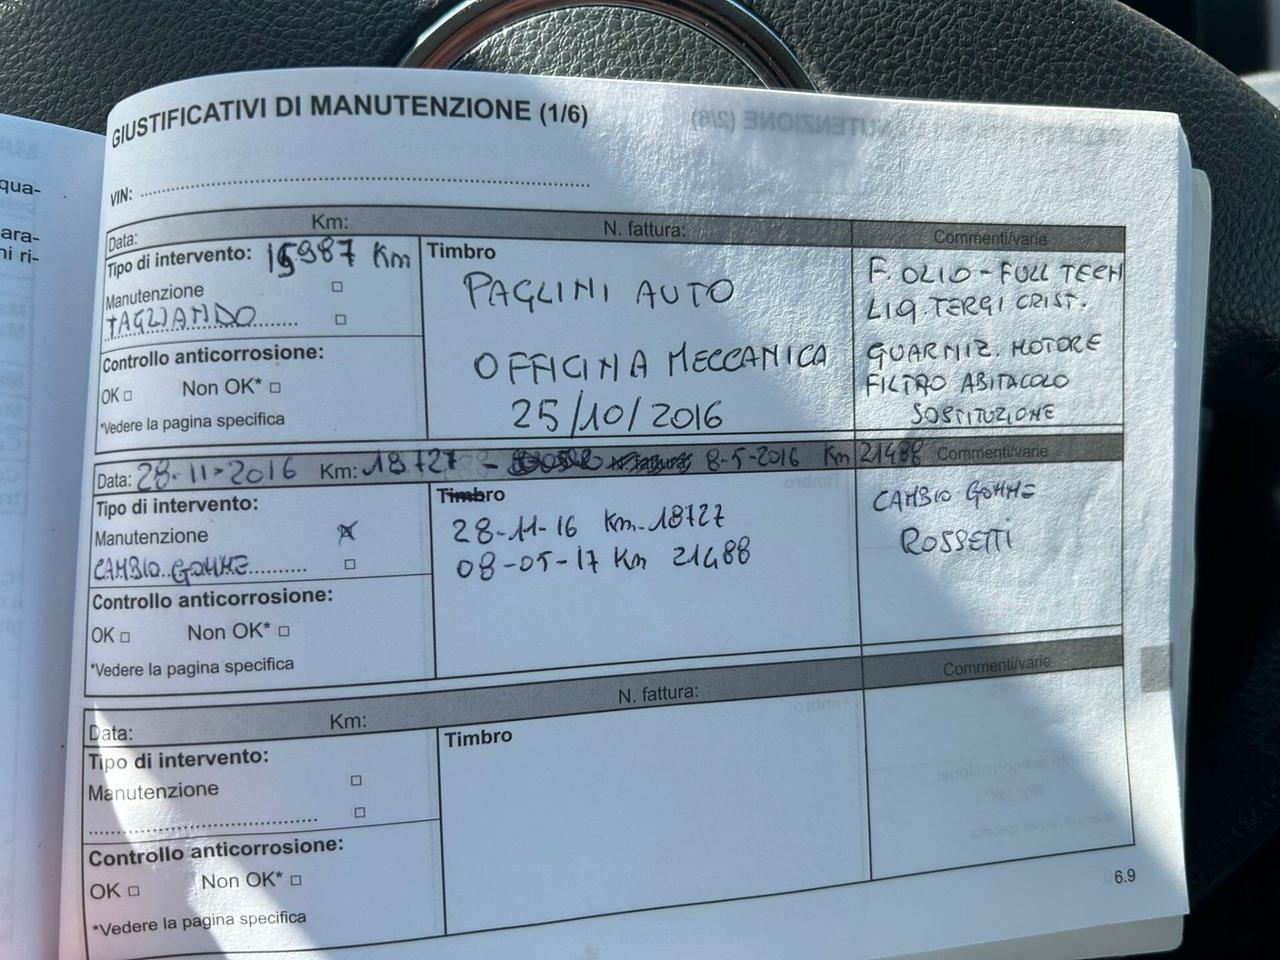 GIUSTIFICATIVI DI MANUTENZIONE (1/6)
VIN:
Data: Km: N. fattura: Commenti/varie
Tipo di intervento: 15987 Km
Manutenzione □
TAGLIANDO □
Controllo anticorrosione:
OK □ Non OK* □
*Vedere la pagina specifica
Timbro
PAGLINI AUTO
OFFICINA MECCANICA
25/10/2016
F. OLIO - FULL TECH
LIQ. TERGI CRIST.
GUARNIZ. MOTORE
FILTRO ABITACOLO
SOSTITUZIONE
Data: 28-11-2016 Km: 18727 - N. fattura: 8-5-2016 Km 21488 Commenti/varie
Tipo di intervento:
Manutenzione
CAMBIO GOMME □
Controllo anticorrosione:
OK □ Non OK* □
*Vedere la pagina specifica
Timbro
28-11-16 Km-18727
08-05-17 Km 21488
CAMBIO GOMME
ROSSETTI
Data: Km: N. fattura: Commenti/varie
Tipo di intervento:
Manutenzione □
□
Controllo anticorrosione:
OK □ Non OK* □
*Vedere la pagina specifica
Timbro
6.9
qua-
ara-
ni ri-